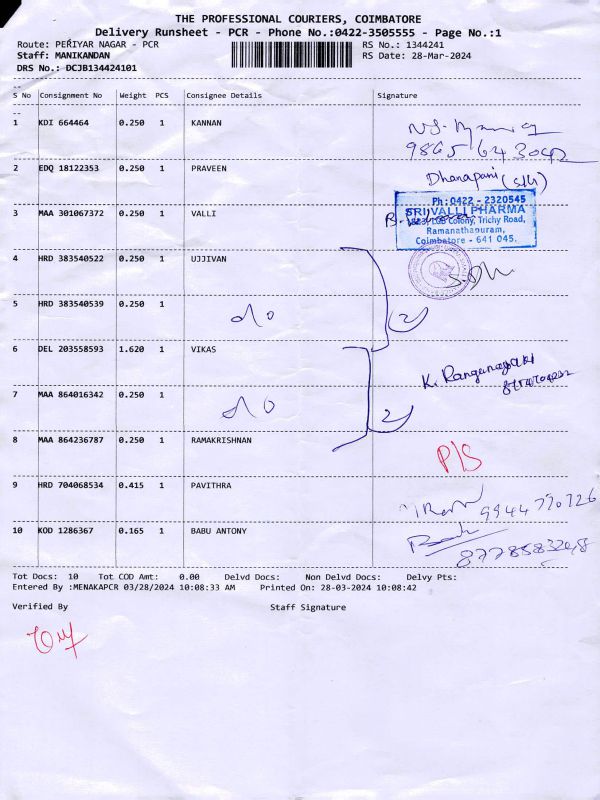 THE PROFESSIONAL COURIERS, COIMBATORE
Delivery Runsheet - PCR - Phone No.:0422-3505555 - Page No.:1
Route: PERIYAR NAGAR - PCR RS No.: 1344241
Staff: MANIKANDAN RS Date: 28-Mar-2024
DRS No.: DCJB134424101
S No Consignment No Weight PCS Consignee Details Signature
1 KDI 664464 0.250 1 KANNAN
9865643042
2 EDQ 18122353 0.250 1 PRAVEEN
Dhanapani (S/U)
Ph : 0422 - 2320545
SRIVALLI PHARMA
LGB Colony, Trichy Road,
Ramanathapuram,
Coimbatore - 641 045.
3 MAA 301067372 0.250 1 VALLI
4 HRD 383540522 0.250 1 UJJIVAN
5 HRD 383540539 0.250 1
2
6 DEL 203558593 1.620 1 VIKAS
K. Ranganayaki
7 MAA 864016342 0.250 1
2
8 MAA 864236787 0.250 1 RAMAKRISHNAN
P/S
9 HRD 704068534 0.415 1 PAVITHRA
9944770726
10 KOD 1286367 0.165 1 BABU ANTONY
Tot Docs: 10 Tot COD Amt: 0.00 Delvd Docs: Non Delvd Docs: Delvy Pts:
Entered By :MENAKAPCR 03/28/2024 10:08:33 AM Printed On: 28-03-2024 10:08:42
Verified By Staff Signature